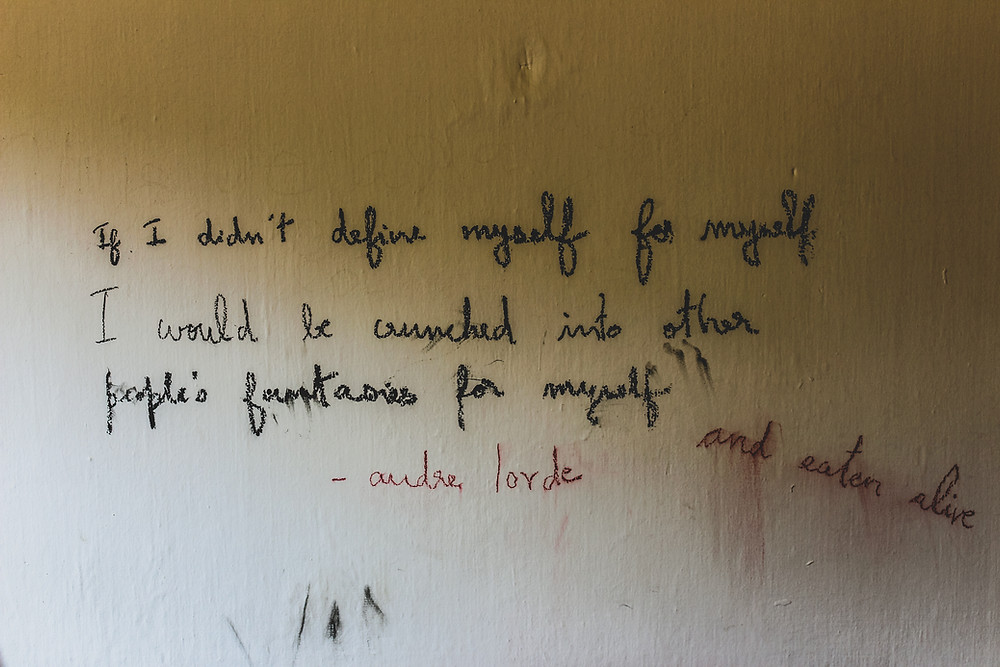 If I didn't define myself for myself
I would be crunched into other
people's fantasies for myself
and eaten alive
- audre lorde